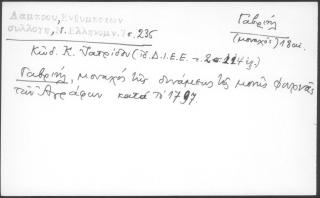 Λάμπρου, Ενθυμήσεων
συλλογή, Ν. Ελληνομν. 7 σ. 235
Γαβριήλ
(μοναχός) 18 αι.
Κώδ. Κ. Πατρίδου (ἰδ. Δ.Ι.Ε.Ε. 214
Γαβριήλ, μοναχός τῆς συνάμεως τῆς μονῆς Φουρνᾶς
τῶν Ἀγράφων κατά τό 1797.